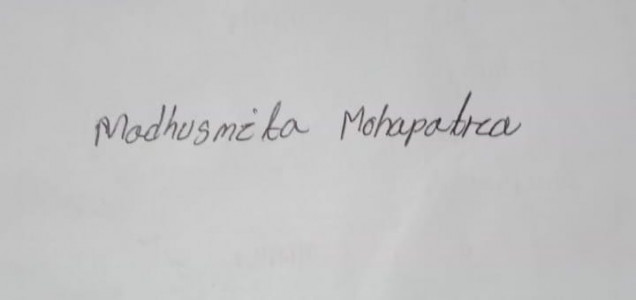 Madhusmita Mohapatra